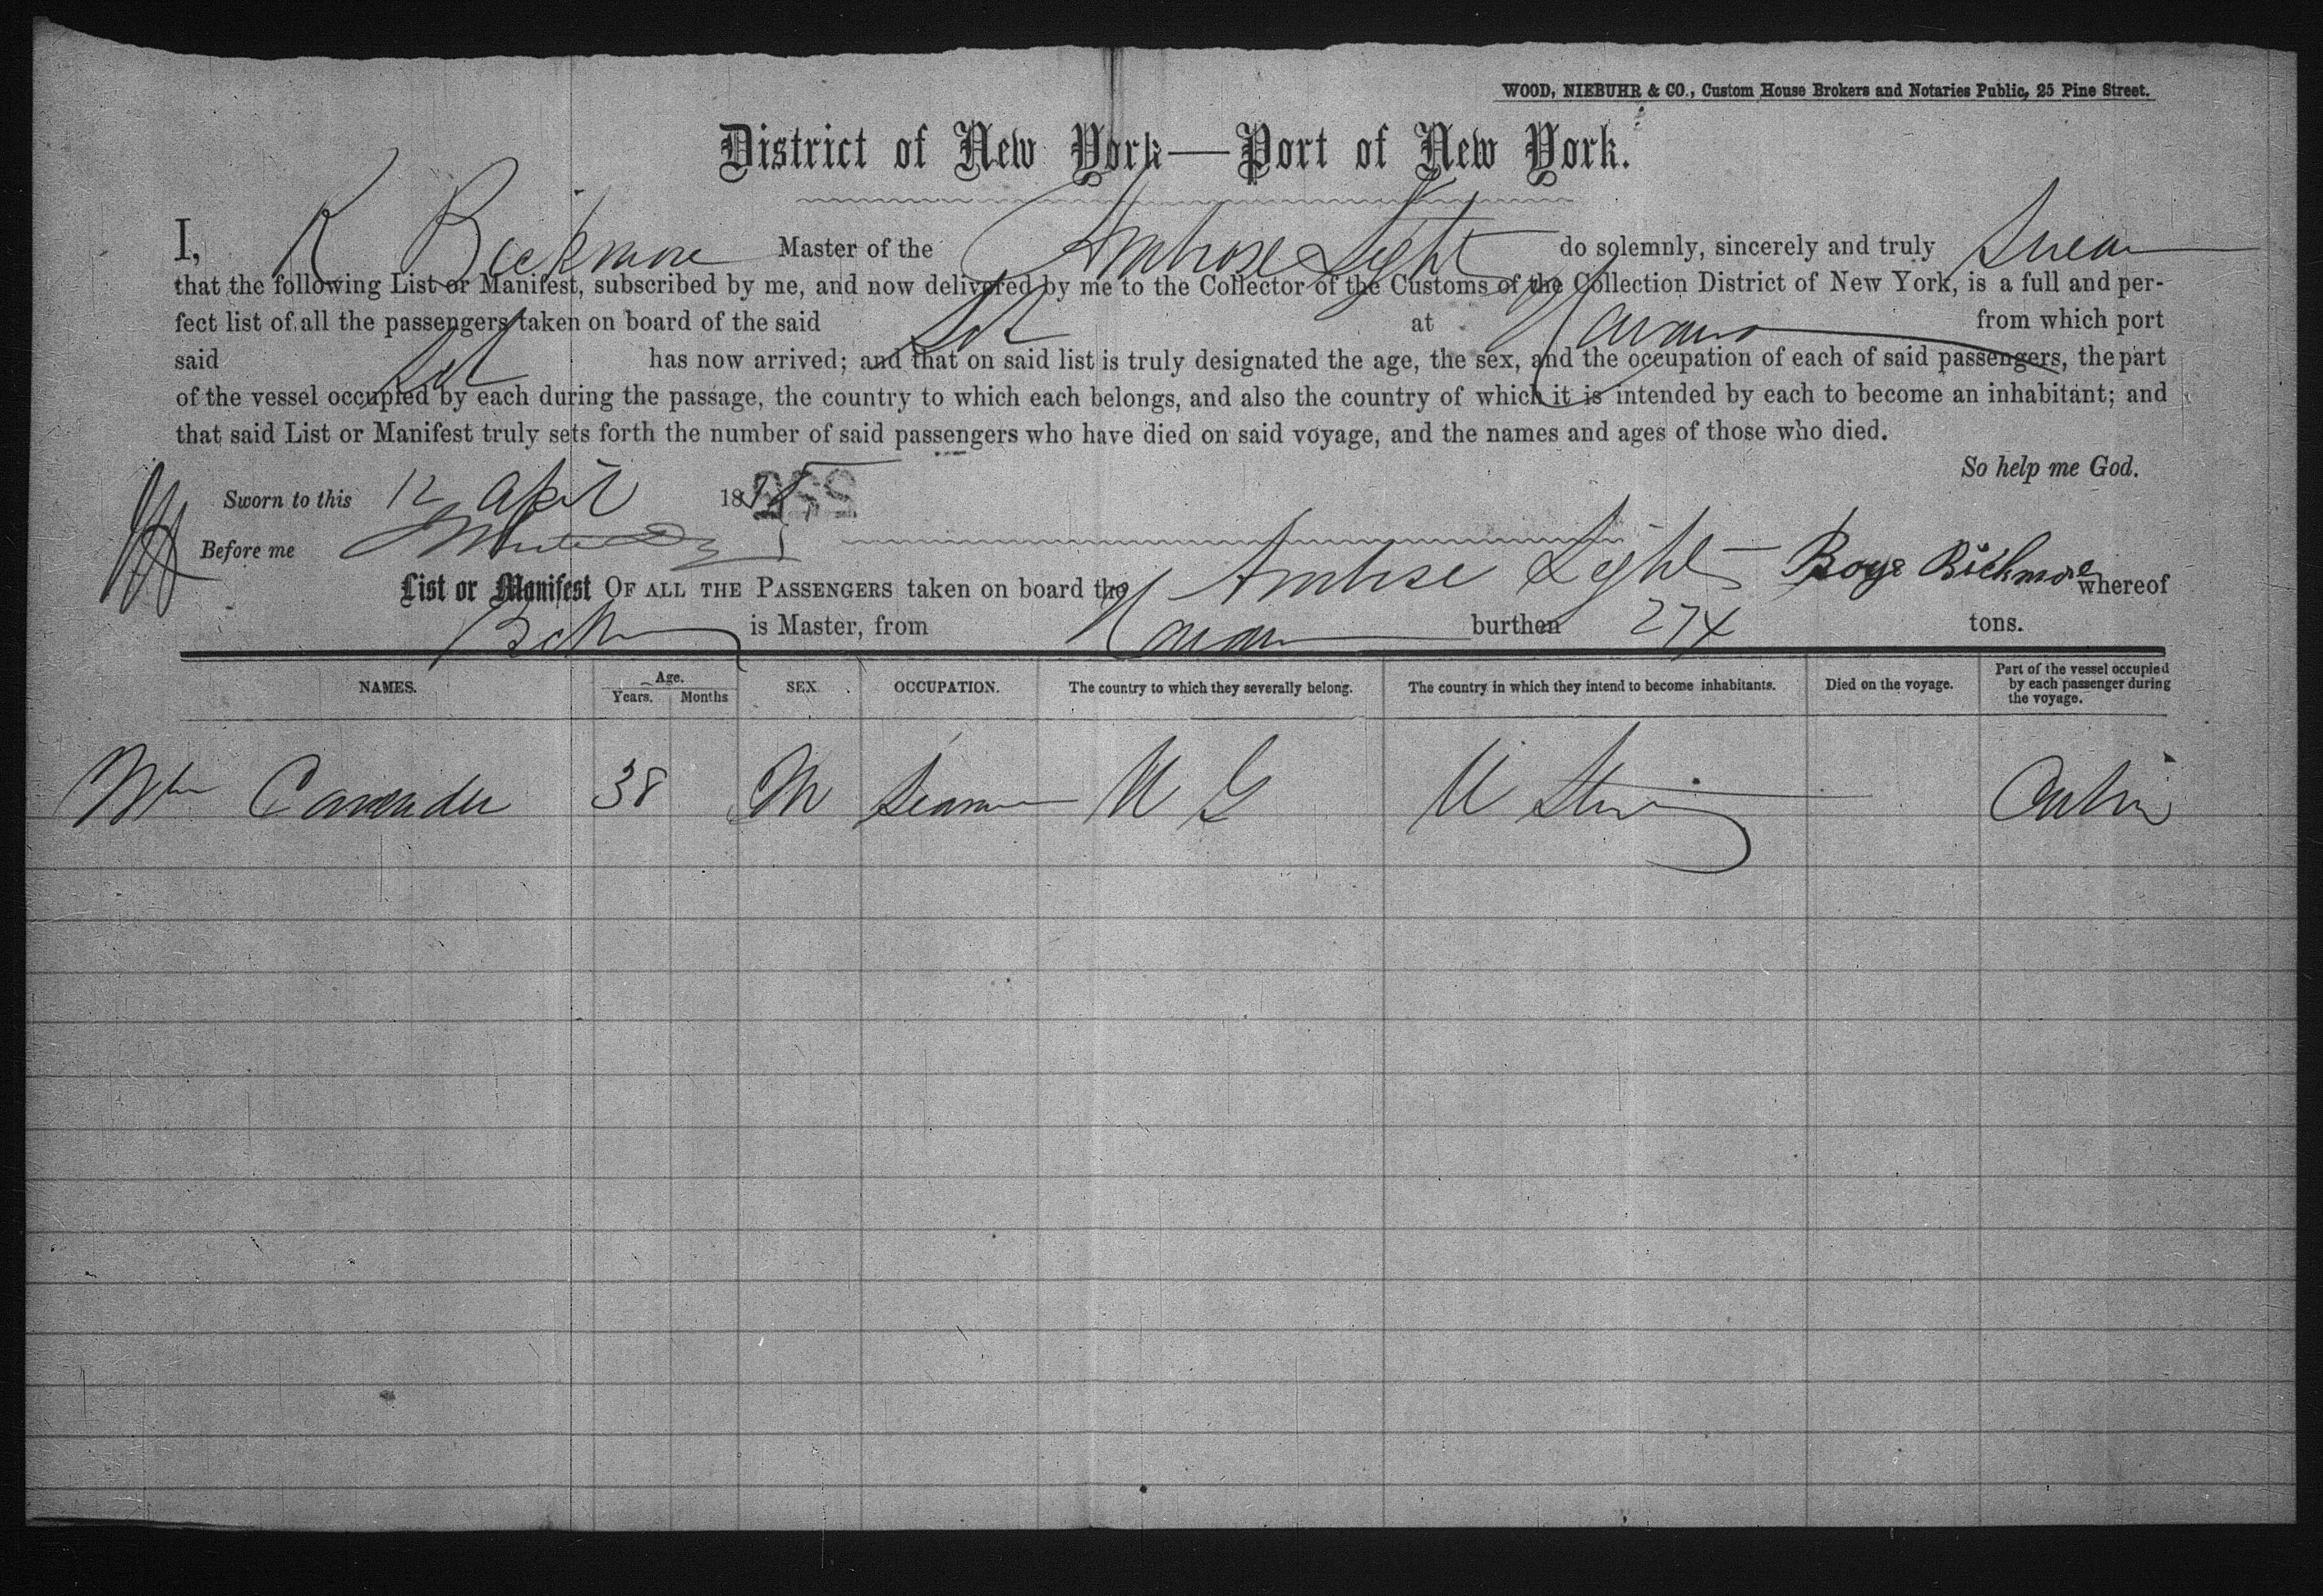 WOOD, NIEBUHR & CO., Custom House Brokers and Notaries Public, 25 Pine Street.
District of New York—Port of New York.
I, R Bickmore Master of the Ambrose Light do solemnly, sincerely and truly Swear
that the following List or Manifest, subscribed by me, and now delivered by me to the Collector of the Customs of the Collection District of New York, is a full and per-
fect list of all the passengers taken on board of the said at Havana from which port
said has now arrived; and that on said list is truly designated the age, the sex, and the occupation of each of said passengers, the part
of the vessel occupied by each during the passage, the country to which each belongs, and also the country of which it is intended by each to become an inhabitant; and
that said List or Manifest truly sets forth the number of said passengers who have died on said voyage, and the names and ages of those who died.
So help me God.
Sworn to this 12 April 18
Before me
List or Manifest OF ALL THE PASSENGERS taken on board the Ambrose Light Bickmore whereof
is Master, from Havana burthen 274 tons.
NAMES. Age. Years. Months SEX. OCCUPATION. The country to which they severally belong. The country in which they intend to become inhabitants. Died on the voyage. Part of the vessel occupied by each passenger during the voyage.
Wm Cavender 38 M Seaman U S U States Cabin